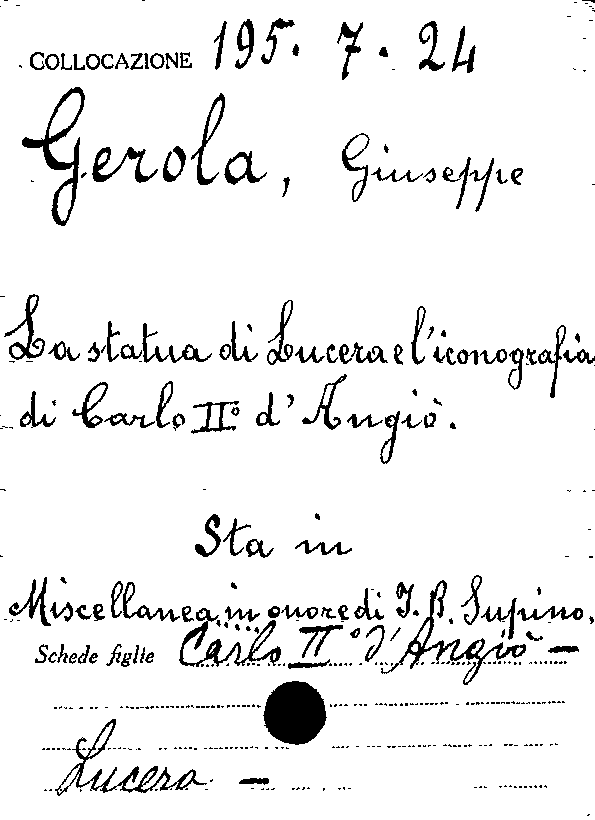 COLLOCAZIONE 195. 7. 24
Gerola, Giuseppe
La statua di Lucera e l'iconografia
di Carlo II° d'Angiò.
Sta in
Miscellanea in onore di I. B. Supino.
Schede figlie Carlo II° d'Angiò —
Lucera —